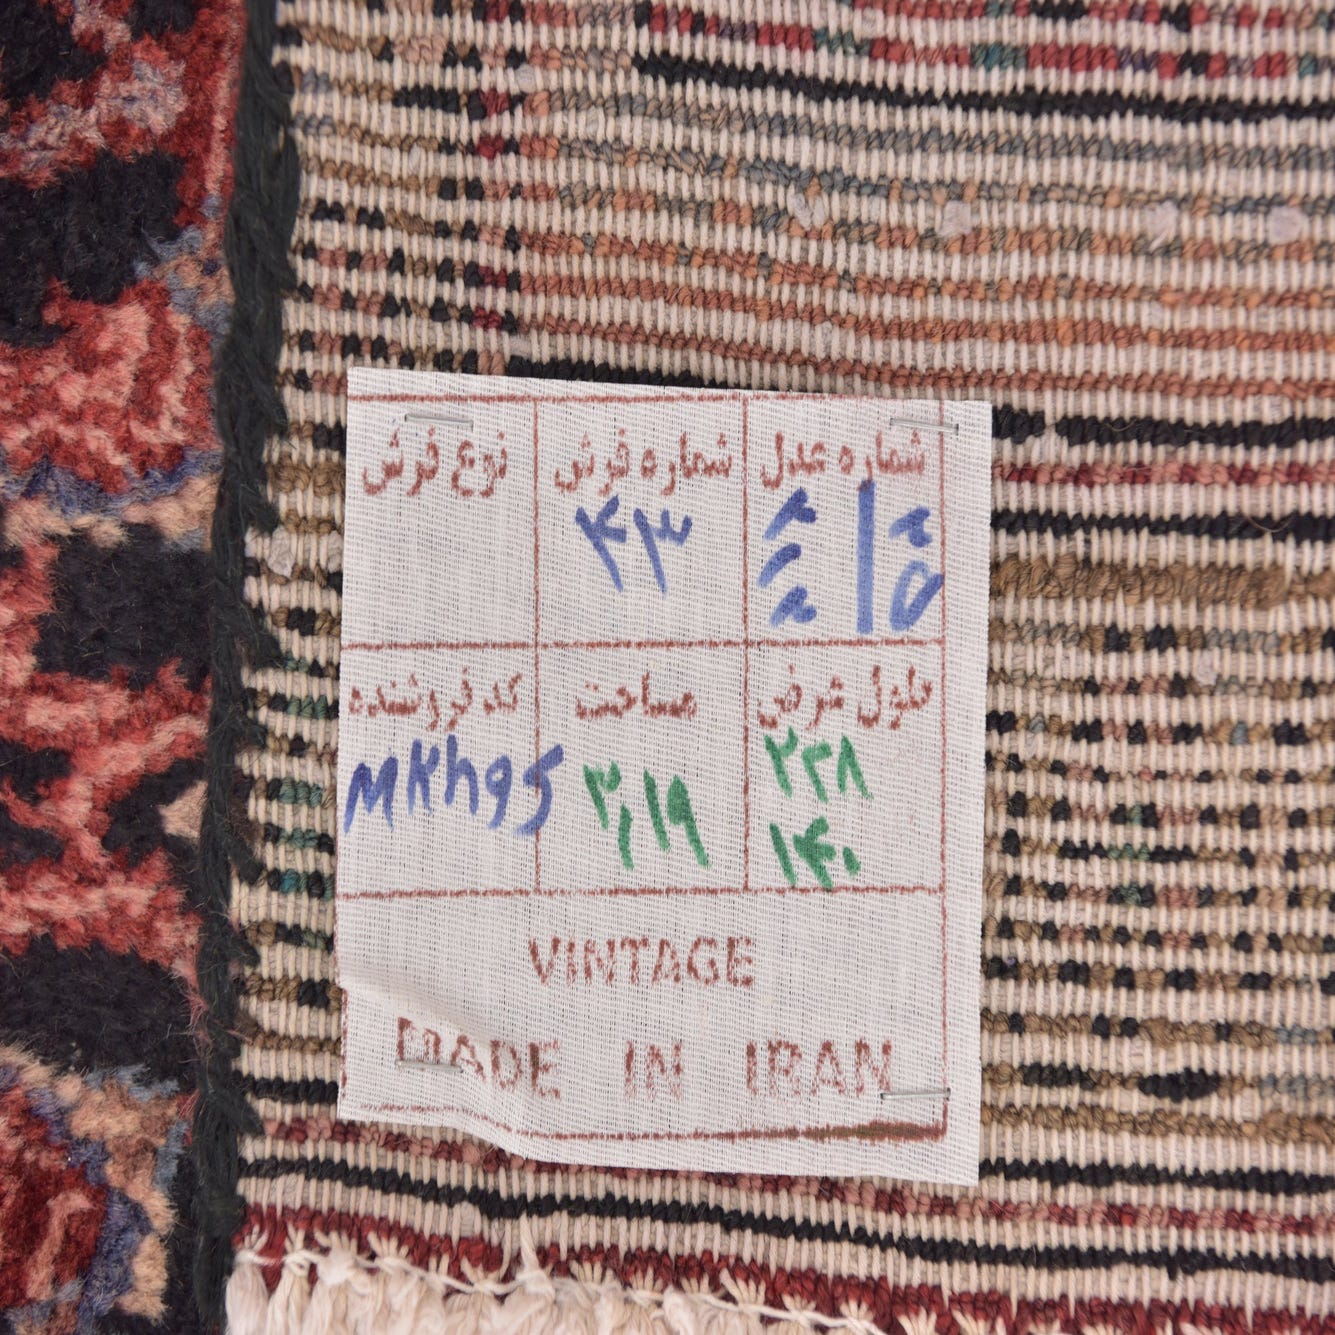 شماره عدل
شماره فرش
نوع فرش
۴۳
طول عرض
مساحت
کد فروشنده
۲۲۸
۱۴۰
۳,۱۹
MKh95
VINTAGE
MADE IN IRAN